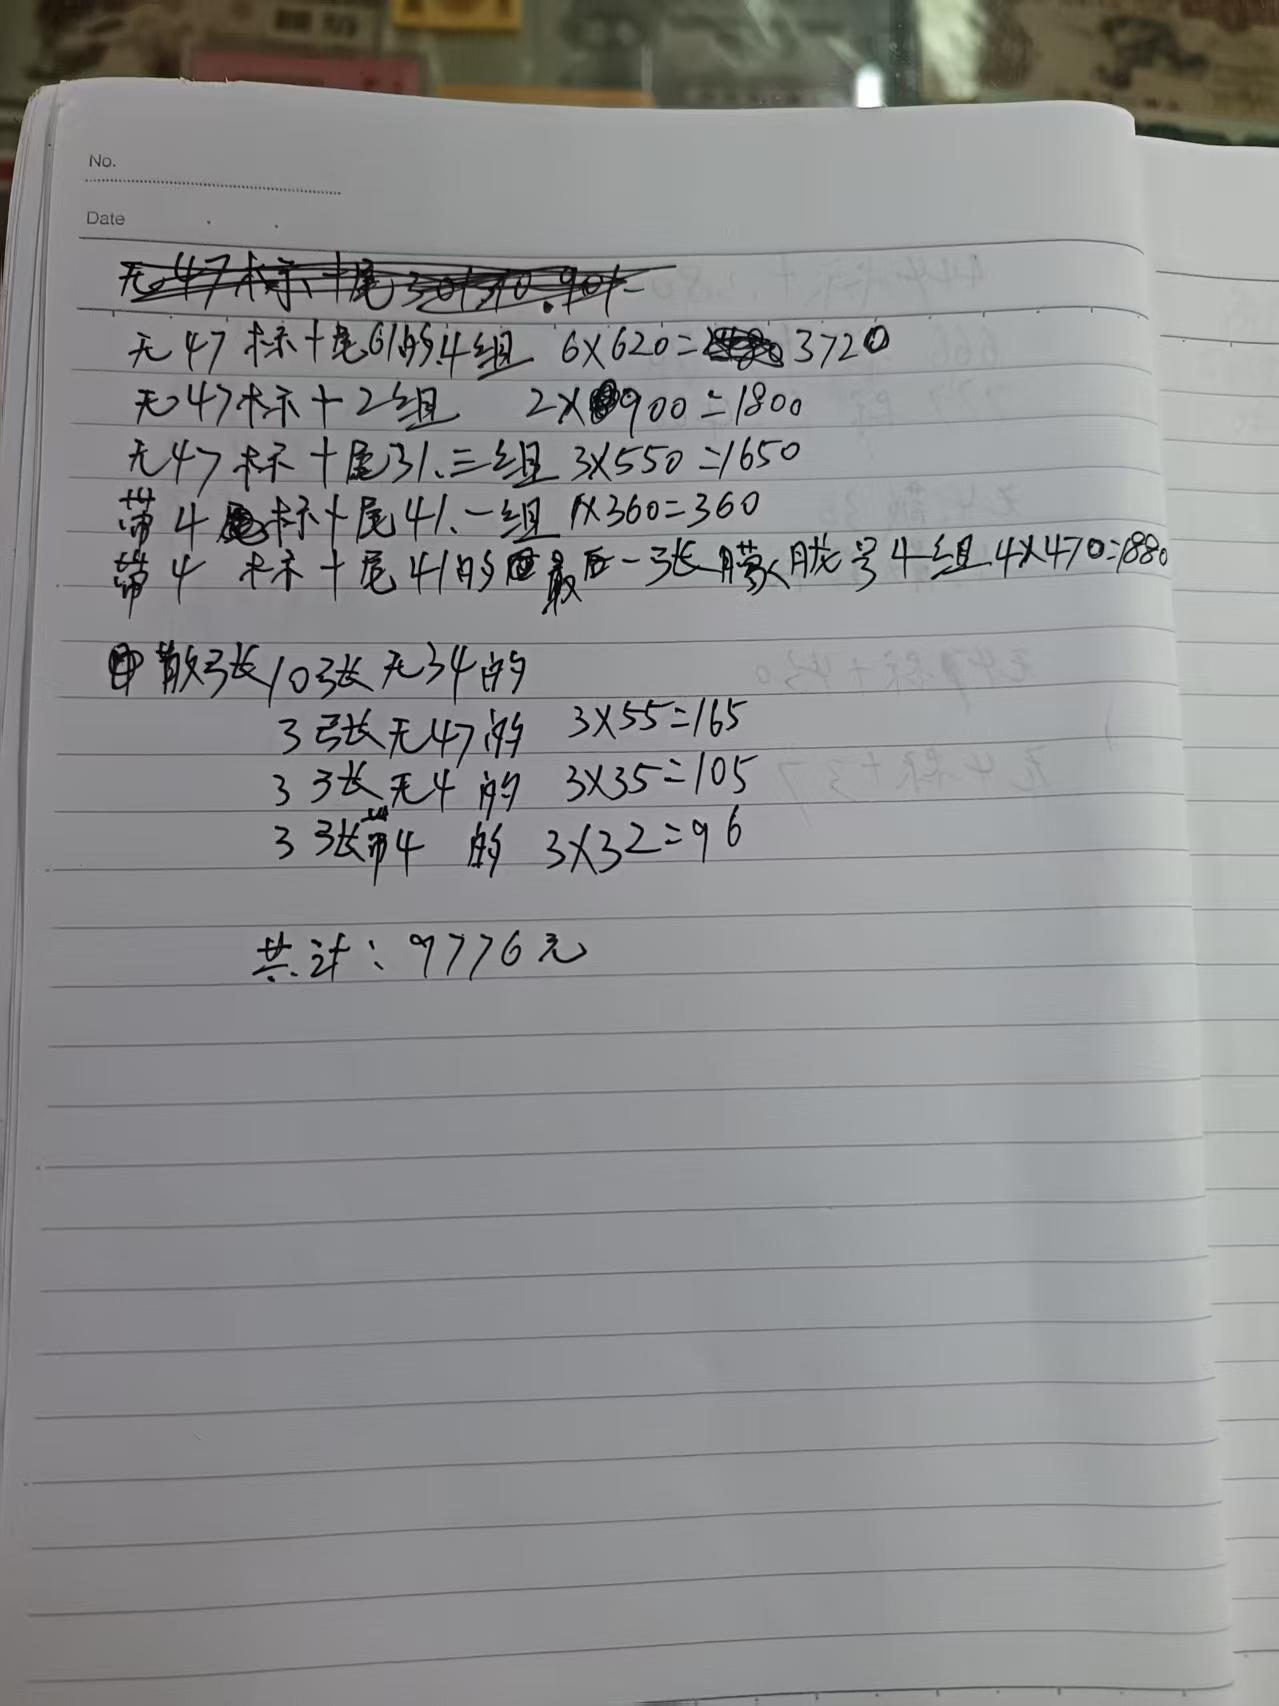 No.
Date
无47标十尾
无47标十尾61的4组 6×620=3720
无47标十2组 2×900=1800
无47标十尾31.三组 3×550=1650
带4标十尾41.一组 1×360=360
带4标十尾41的最后一张朦胧号4组4×470=1880
散张10张无34的
3张无47的 3×55=165
3张无4的 3×35=105
3张带4的 3×32=96
共计:9776元